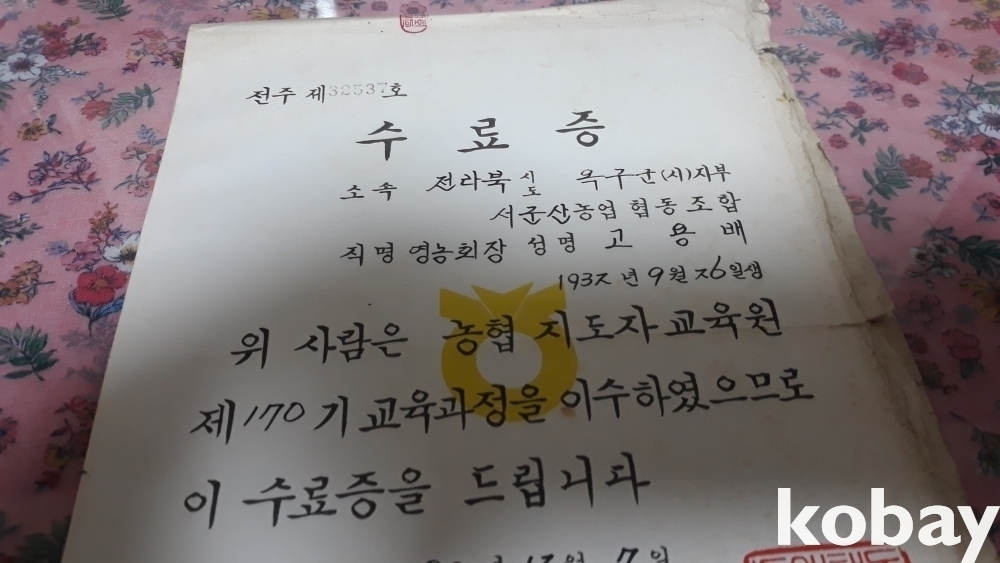 전주 제32537호
수료증
소속 전라북 시도 옥구군(시)지부
서군산농업협동조합
직명 영농회장 성명 고용배
1937년 9월 26일생
위 사람은 농협 지도자교육원
제170기 교육과정을 이수하였으므로
이 수료증을 드립니다
월 7일
kobay